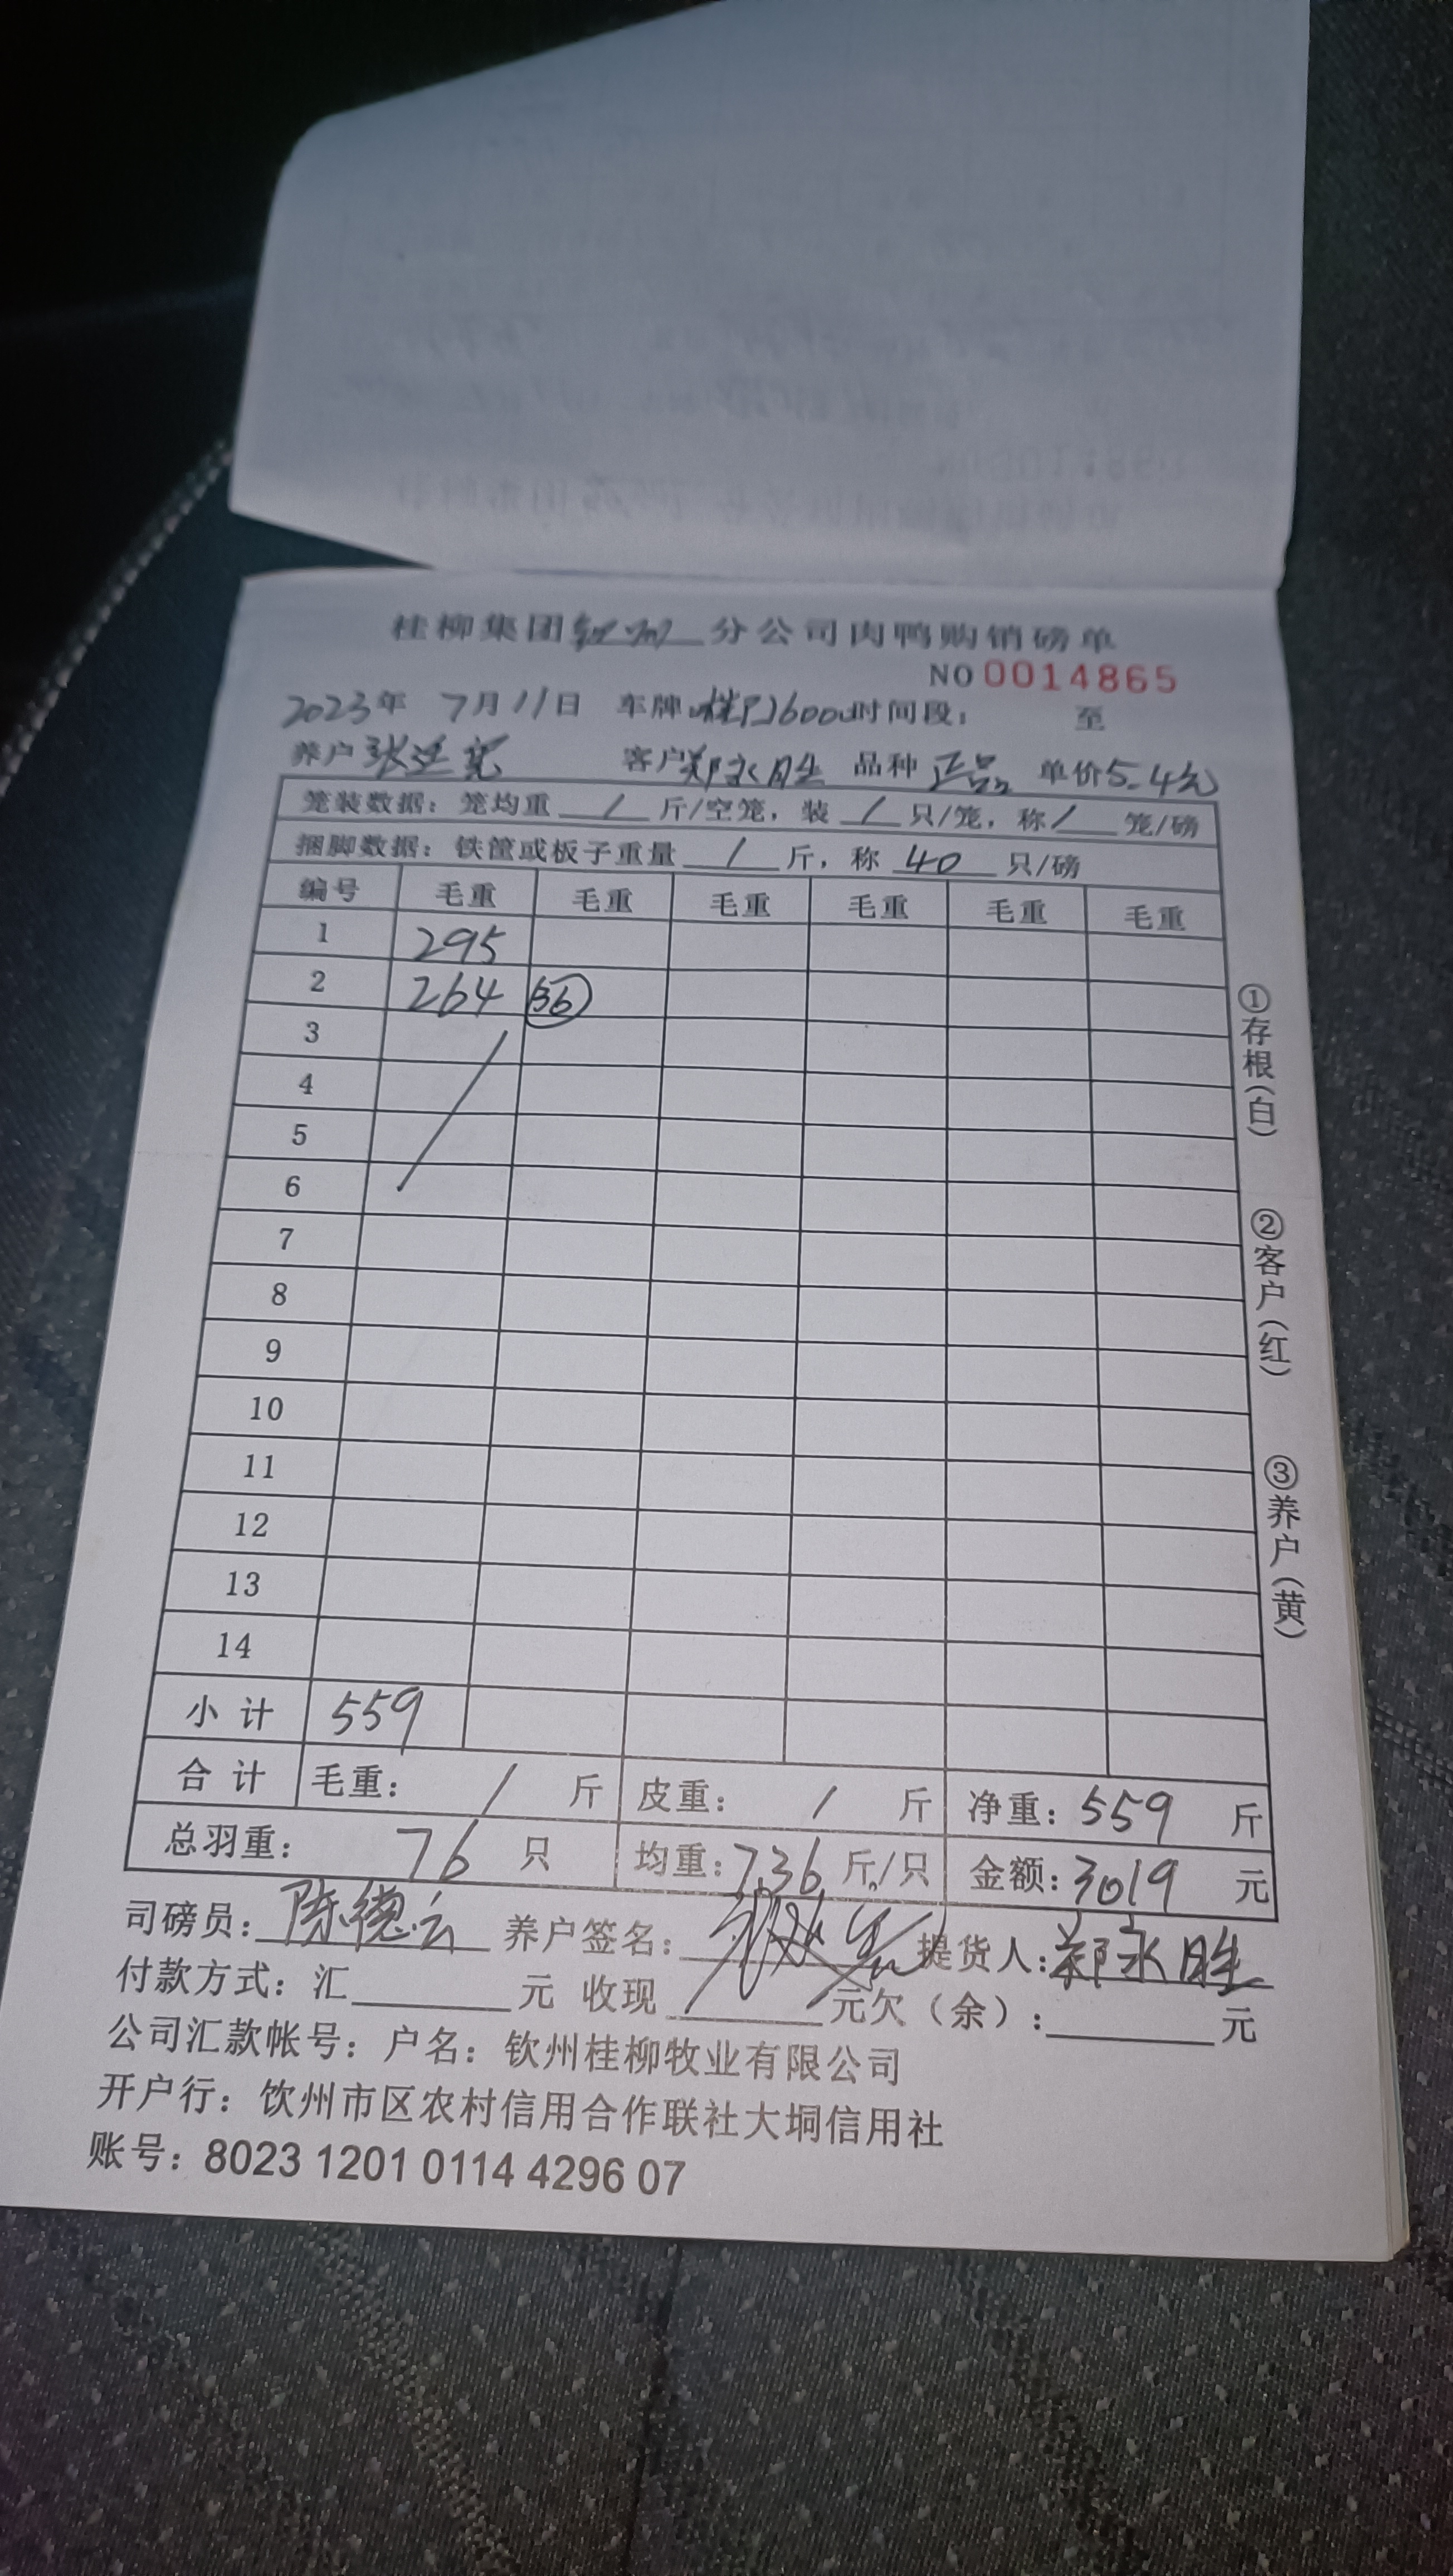 桂柳集团钦州分公司肉鸭购销磅单
NO 0014865
2023年 7月11日 车牌 时间段: 至
养户 张 客户 郑永胜 品种 正品 单价 5.4元
笼装数据: 笼均重 / 斤/空笼, 装 / 只/笼, 称 / 笼/磅
捆脚数据: 铁筐或板子重量 / 斤, 称 40 只/磅
编号 毛重 毛重 毛重 毛重 毛重 毛重
1 295
2 264 36
3
4
5
6
7
8
9
10
11
12
13
14
小计 559
合计 毛重: / 斤 皮重: / 斤 净重: 559 斤
总羽重: 76 只 均重: 7.36 斤/只 金额: 3019 元
司磅员: 陈德云 养户签名: 提货人: 郑永胜
付款方式: 汇 元 收现 元欠(余): 元
公司汇款帐号: 户名: 钦州桂柳牧业有限公司
开户行: 钦州市区农村信用合作联社大垌信用社
账号: 8023 1201 0114 4296 07
①存根(白)
②客户(红)
③养户(黄)